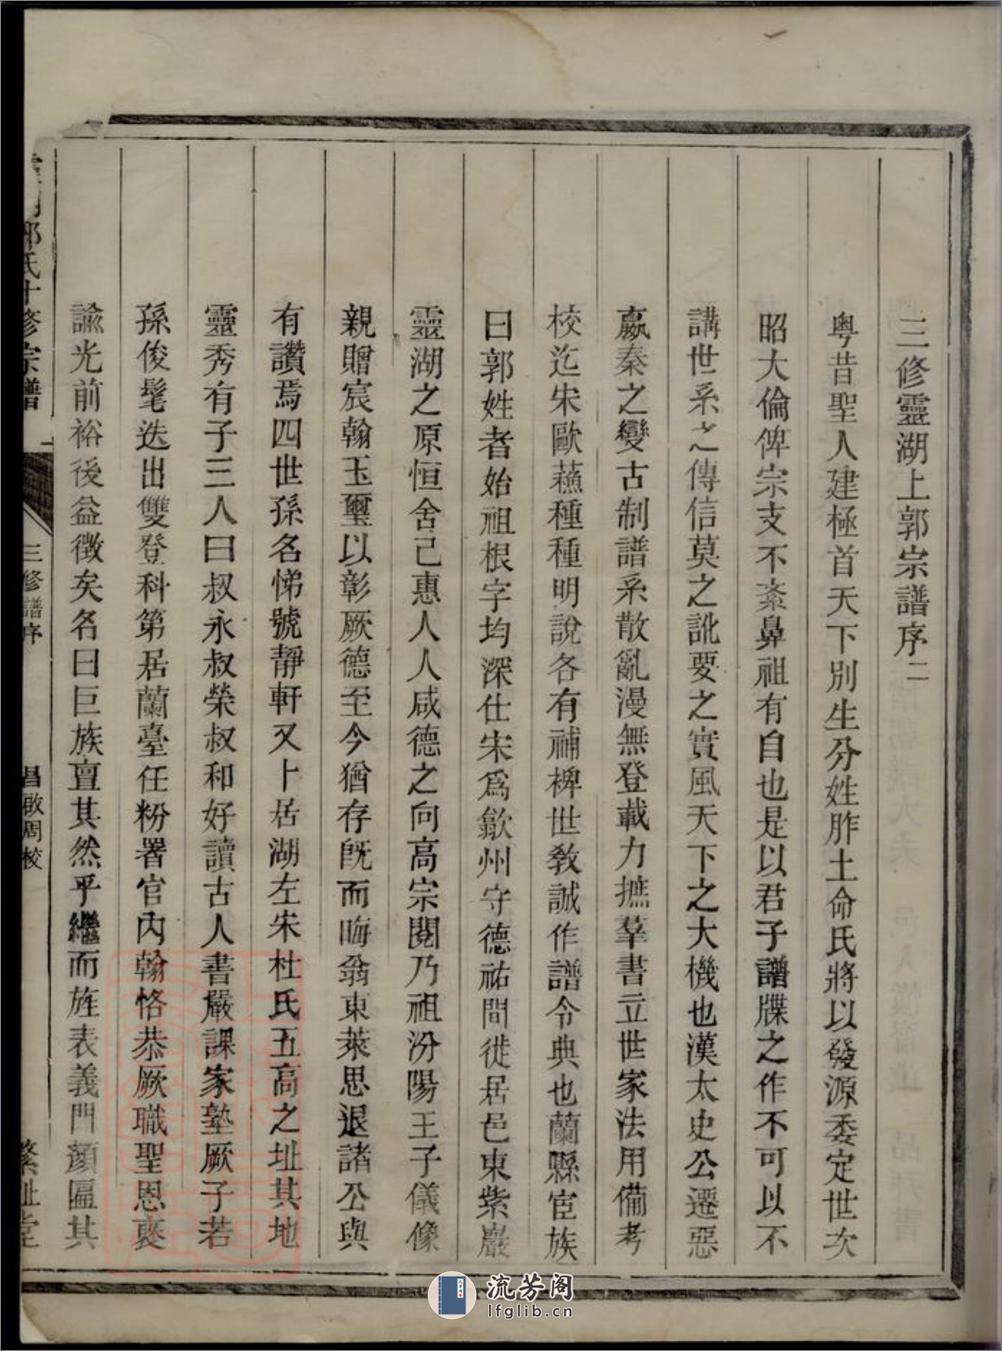 三修靈湖上郭宗譜序二
粵昔聖人建極首天下別生分姓胙土命氏將以發源委定世次
昭大倫俾宗支不紊鼻祖有自也是以君子譜牒之作不可以不
講世系之傳信莫之訛要之實風天下之大機也漢太史公遷惡
嬴秦之變古制譜系散亂漫無登載力摭羣書立世家法用備考
校迄宋歐蘓種種明說各有補椑世教誠作譜令典也蘭縣宦族
曰郭姓者始祖根字均深仕宋爲歙州守德祐間徙居邑東紫巖
靈湖之原恒舍己惠人人咸德之向高宗閱乃祖汾陽王子儀像
親贈宸翰玉璽以彰厥德至今猶存旣而晦翁東萊思退諸公與
有讚焉四世孫名悌號靜軒又卜居湖左朱杜氏五高之址其地
靈秀有子三人曰叔永叔榮叔和好讀古人書嚴課家塾厥子若
孫俊髦迭出雙登科第居蘭臺任粉署官內翰恪恭厥職聖恩褒
諭光前裕後益徵矣名曰巨族亶其然乎繼而旌表義門顏匾其
郭氏十修宗譜
三修譜序
昌啟周校
繁祉堂
流芳阁
lfglib.cn